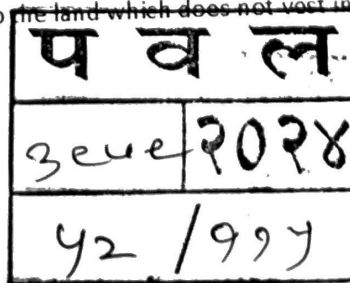 o the land which does not vest in
प व ल
३९५९ २०२४
५२ / ११५